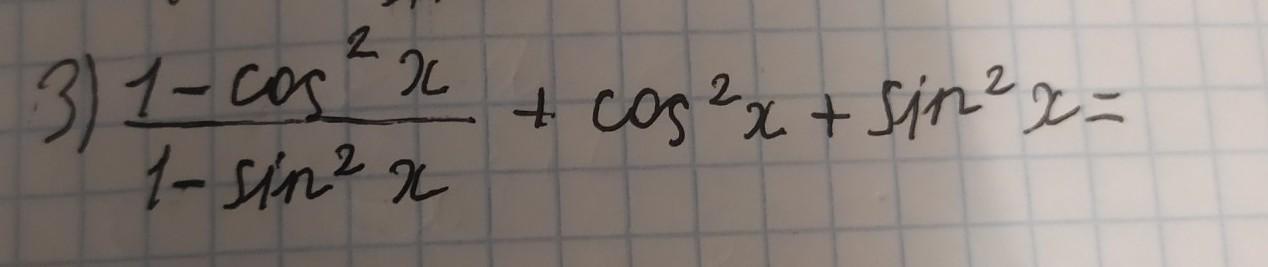 3) (1-cos²x)/(1-sin²x) + cos²x + sin²x =